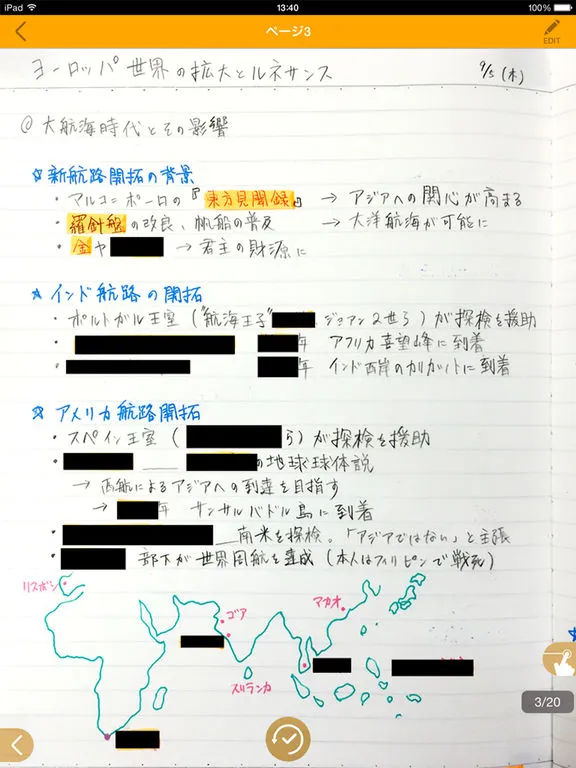 iPad 13:40 100%
ページ3
EDIT
ヨーロッパ世界の拡大とルネサンス 9/5 (木)
◎ 大航海時代とその影響
☆ 新航路開拓の背景
・マルコ=ポーロの『東方見聞録』 → アジアへの関心が高まる
・羅針盤の改良、帆船の普及 → 大洋航海が可能に
・金や → 君主の財源に
☆ インド航路の開拓
・ポルトガル王室 ("航海王子" ジョアン2世ら) が探検を援助
・ 年 アフリカ喜望峰に到着
・ 年 インド西岸のカリカットに到着
☆ アメリカ航路開拓
・スペイン王室 ( ら) が探検を援助
・ の地球球体説
→ 西航によるアジアへの到達を目指す
→ 年 サンサルバドル島に到着
・ 南米を探検。「アジアではない」と主張
・ 部下が世界周航を達成 (本人はフィリピンで戦死)
リスボン
ゴア
マカオ
スリランカ
3/20